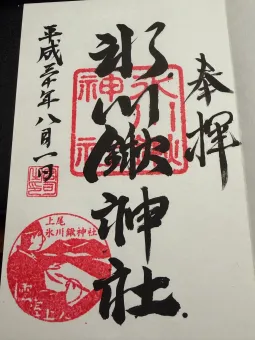 奉拝
氷川鍬神社
氷川
神社
平成三十年八月一日
上尾
氷川鍬神社